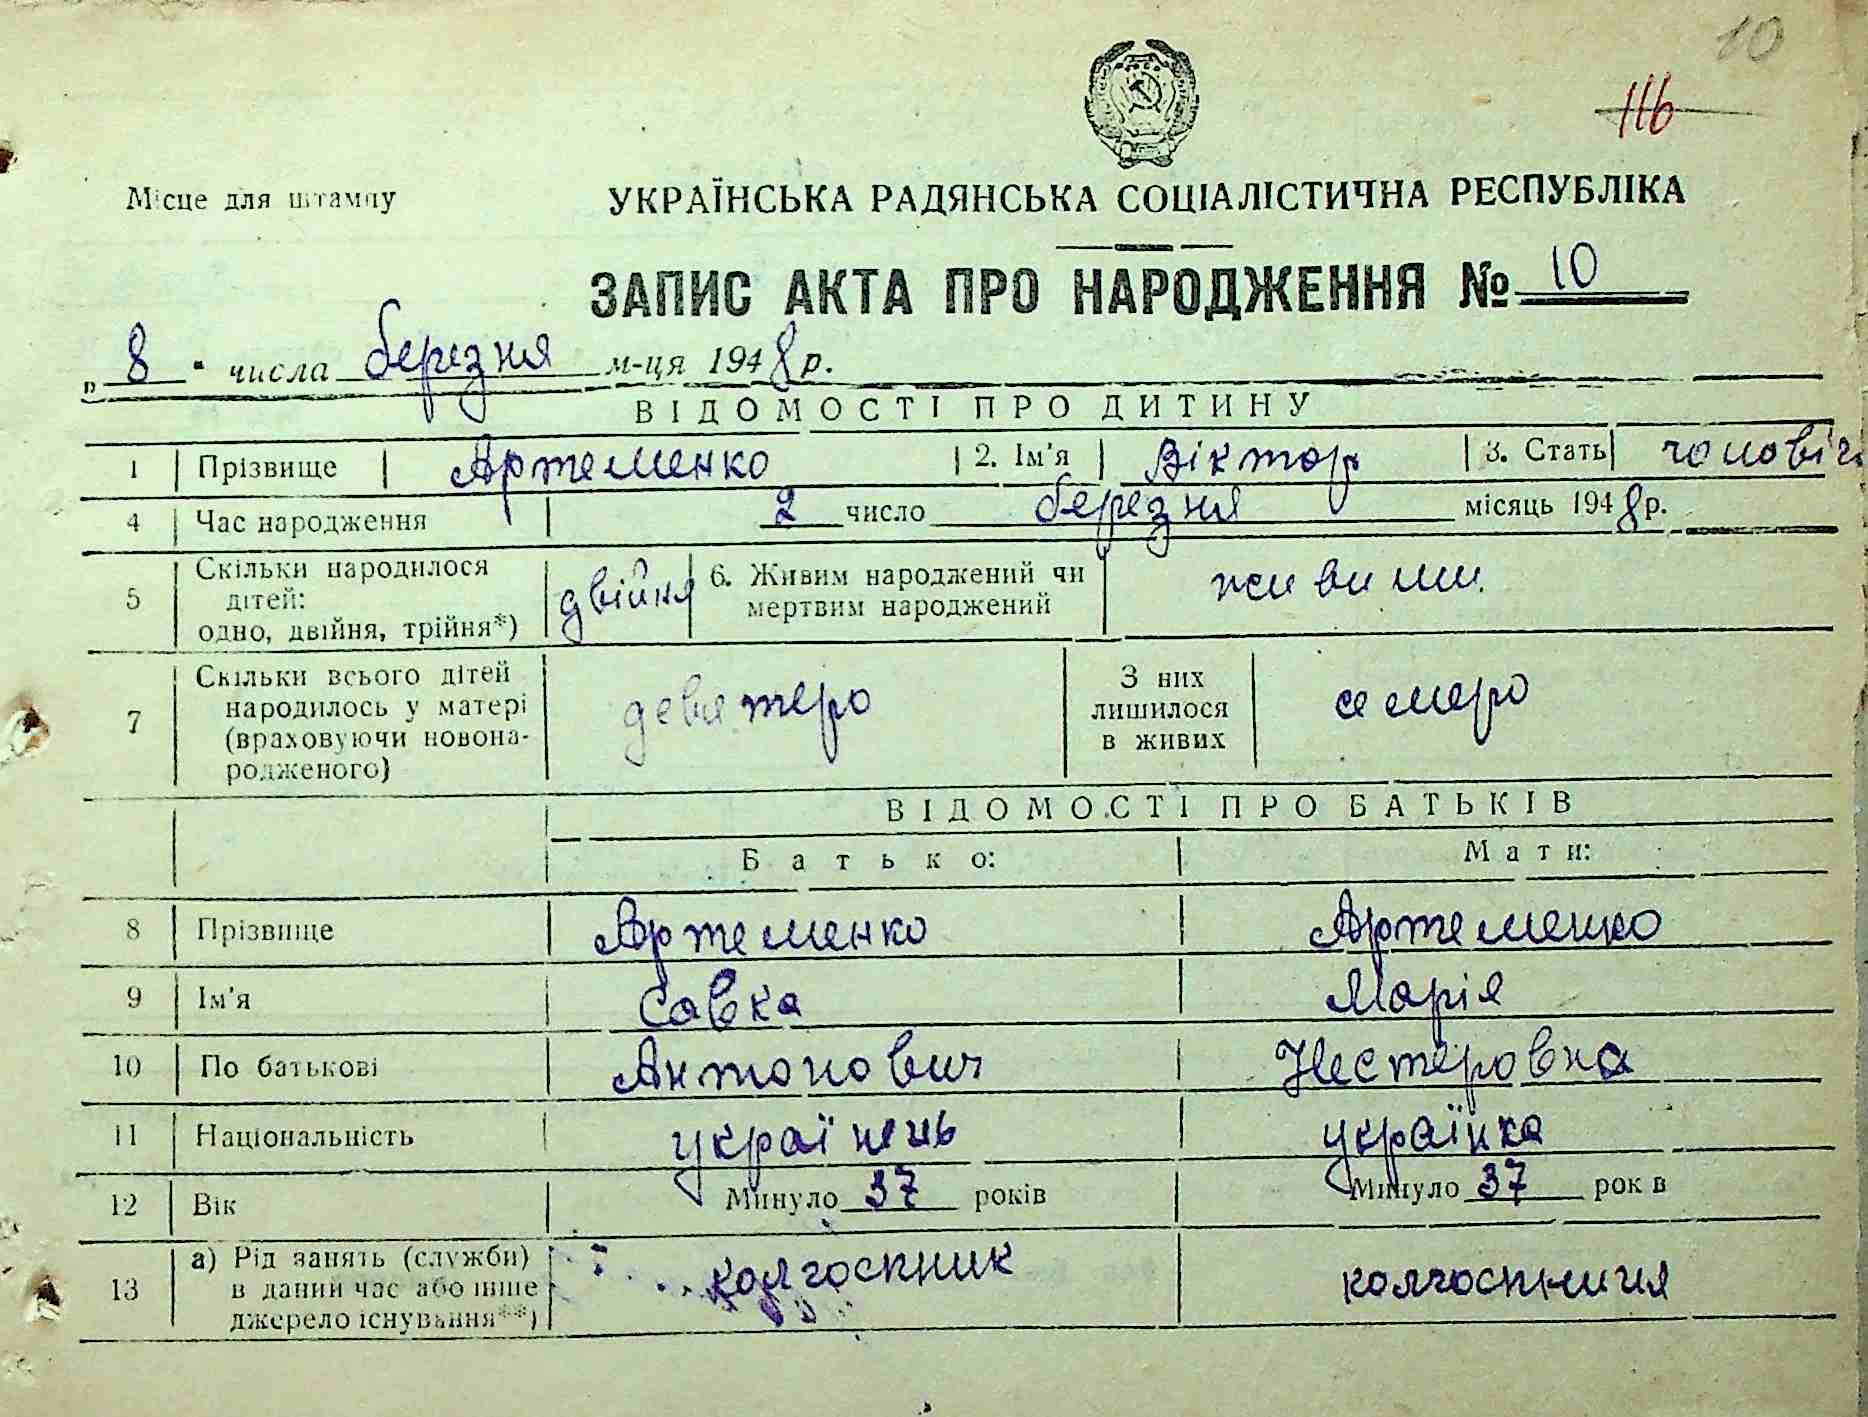 10
116
Місце для штампу
УКРАЇНСЬКА РАДЯНСЬКА СОЦІАЛІСТИЧНА РЕСПУБЛІКА
ЗАПИС АКТА ПРО НАРОДЖЕННЯ № 10
„ 8 " числа березня м-ця 1948 р.
ВІДОМОСТІ ПРО ДИТИНУ
1 Прізвище Артеменко 2. Ім'я Віктор 3. Стать чоловіч
4 Час народження 2 число березня місяць 1948 р.
5 Скільки народилося дітей: одно, двійня, трійня*) двійня 6. Живим народжений чи мертвим народжений живими.
7 Скільки всього дітей народилось у матері (враховуючи новонародженого) девятеро З них лишилося в живих семеро
ВІДОМОСТІ ПРО БАТЬКІВ
Батько: Мати:
8 Прізвище Артеменко Артеменко
9 Ім'я Савка Марія
10 По батькові Антонович Нестеровна
11 Національність українець українка
12 Вік Минуло 37 років Минуло 37 рок в
13 а) Рід занять (служби) в даний час або інше джерело існування**) колгоспник колгоспниця